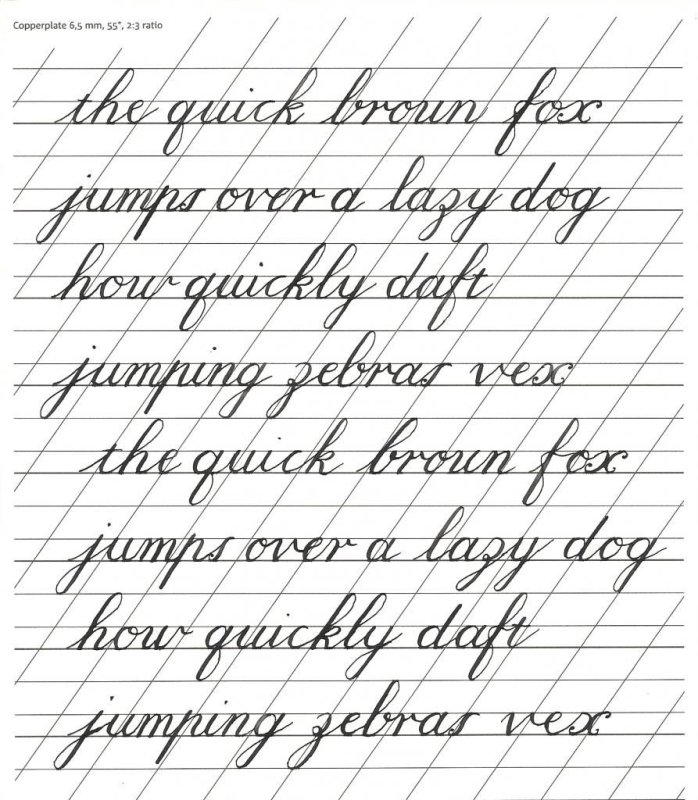 Copperplate 6,5 mm, 55°, 2:3 ratio
the quick broun fox
jumps over a lazy dog
how quickly daft
jumping zebras vex
the quick broun fox
jumps over a lazy dog
how quickly daft
jumping zebras vex